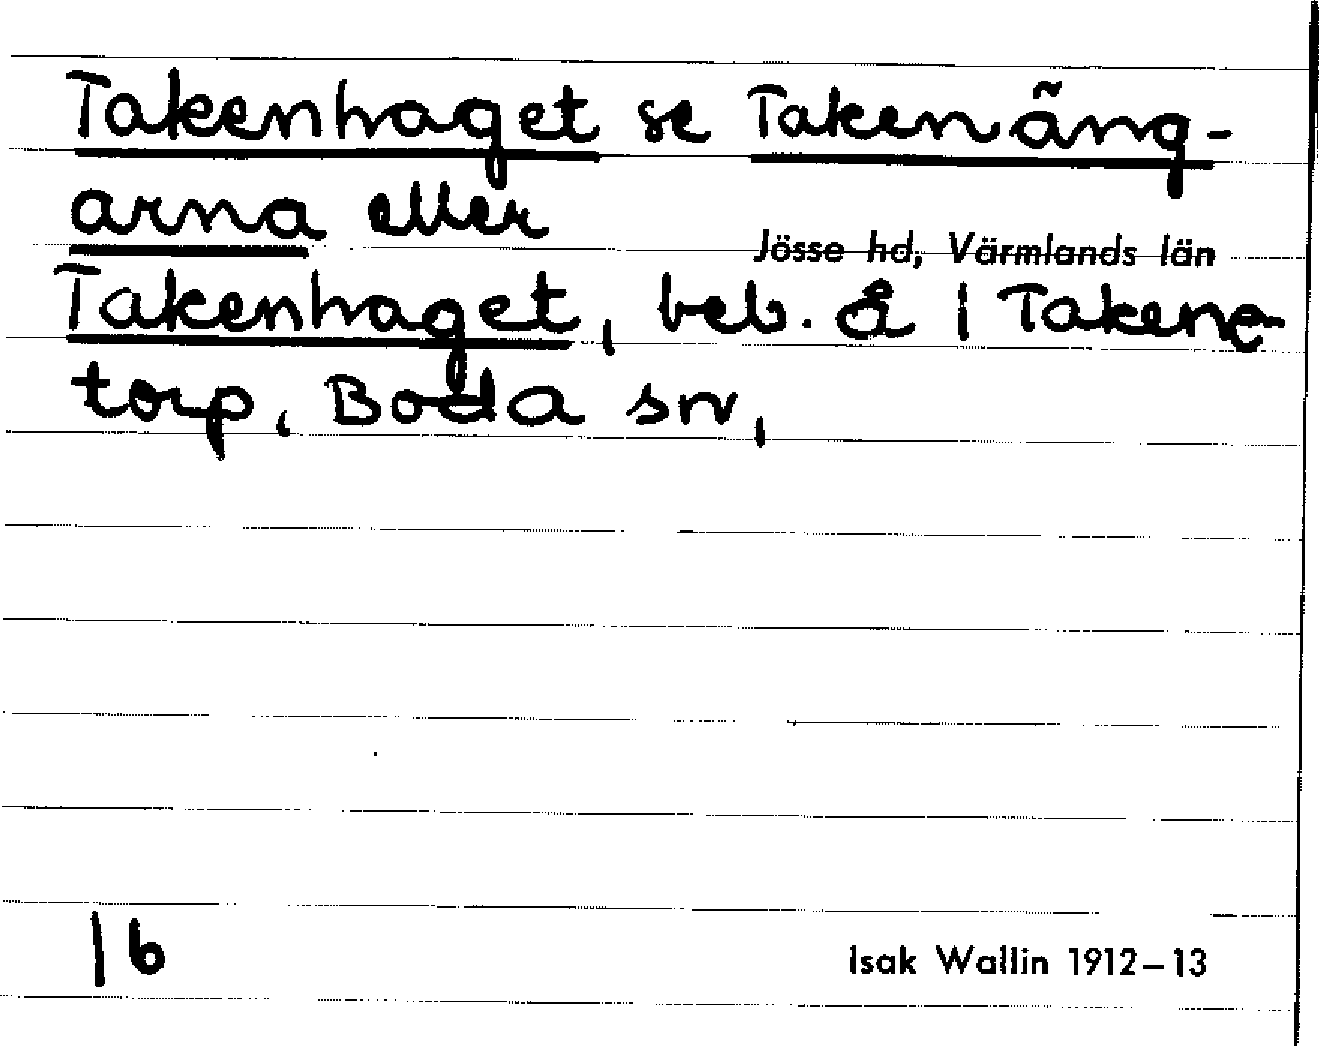 Takenhaget se Takenäng-
arna eller
Jösse hd, Värmlands län
Takenhaget, beb. å 1 Takene-
torp, Boda sn,
16
Isak Wallin 1912–13